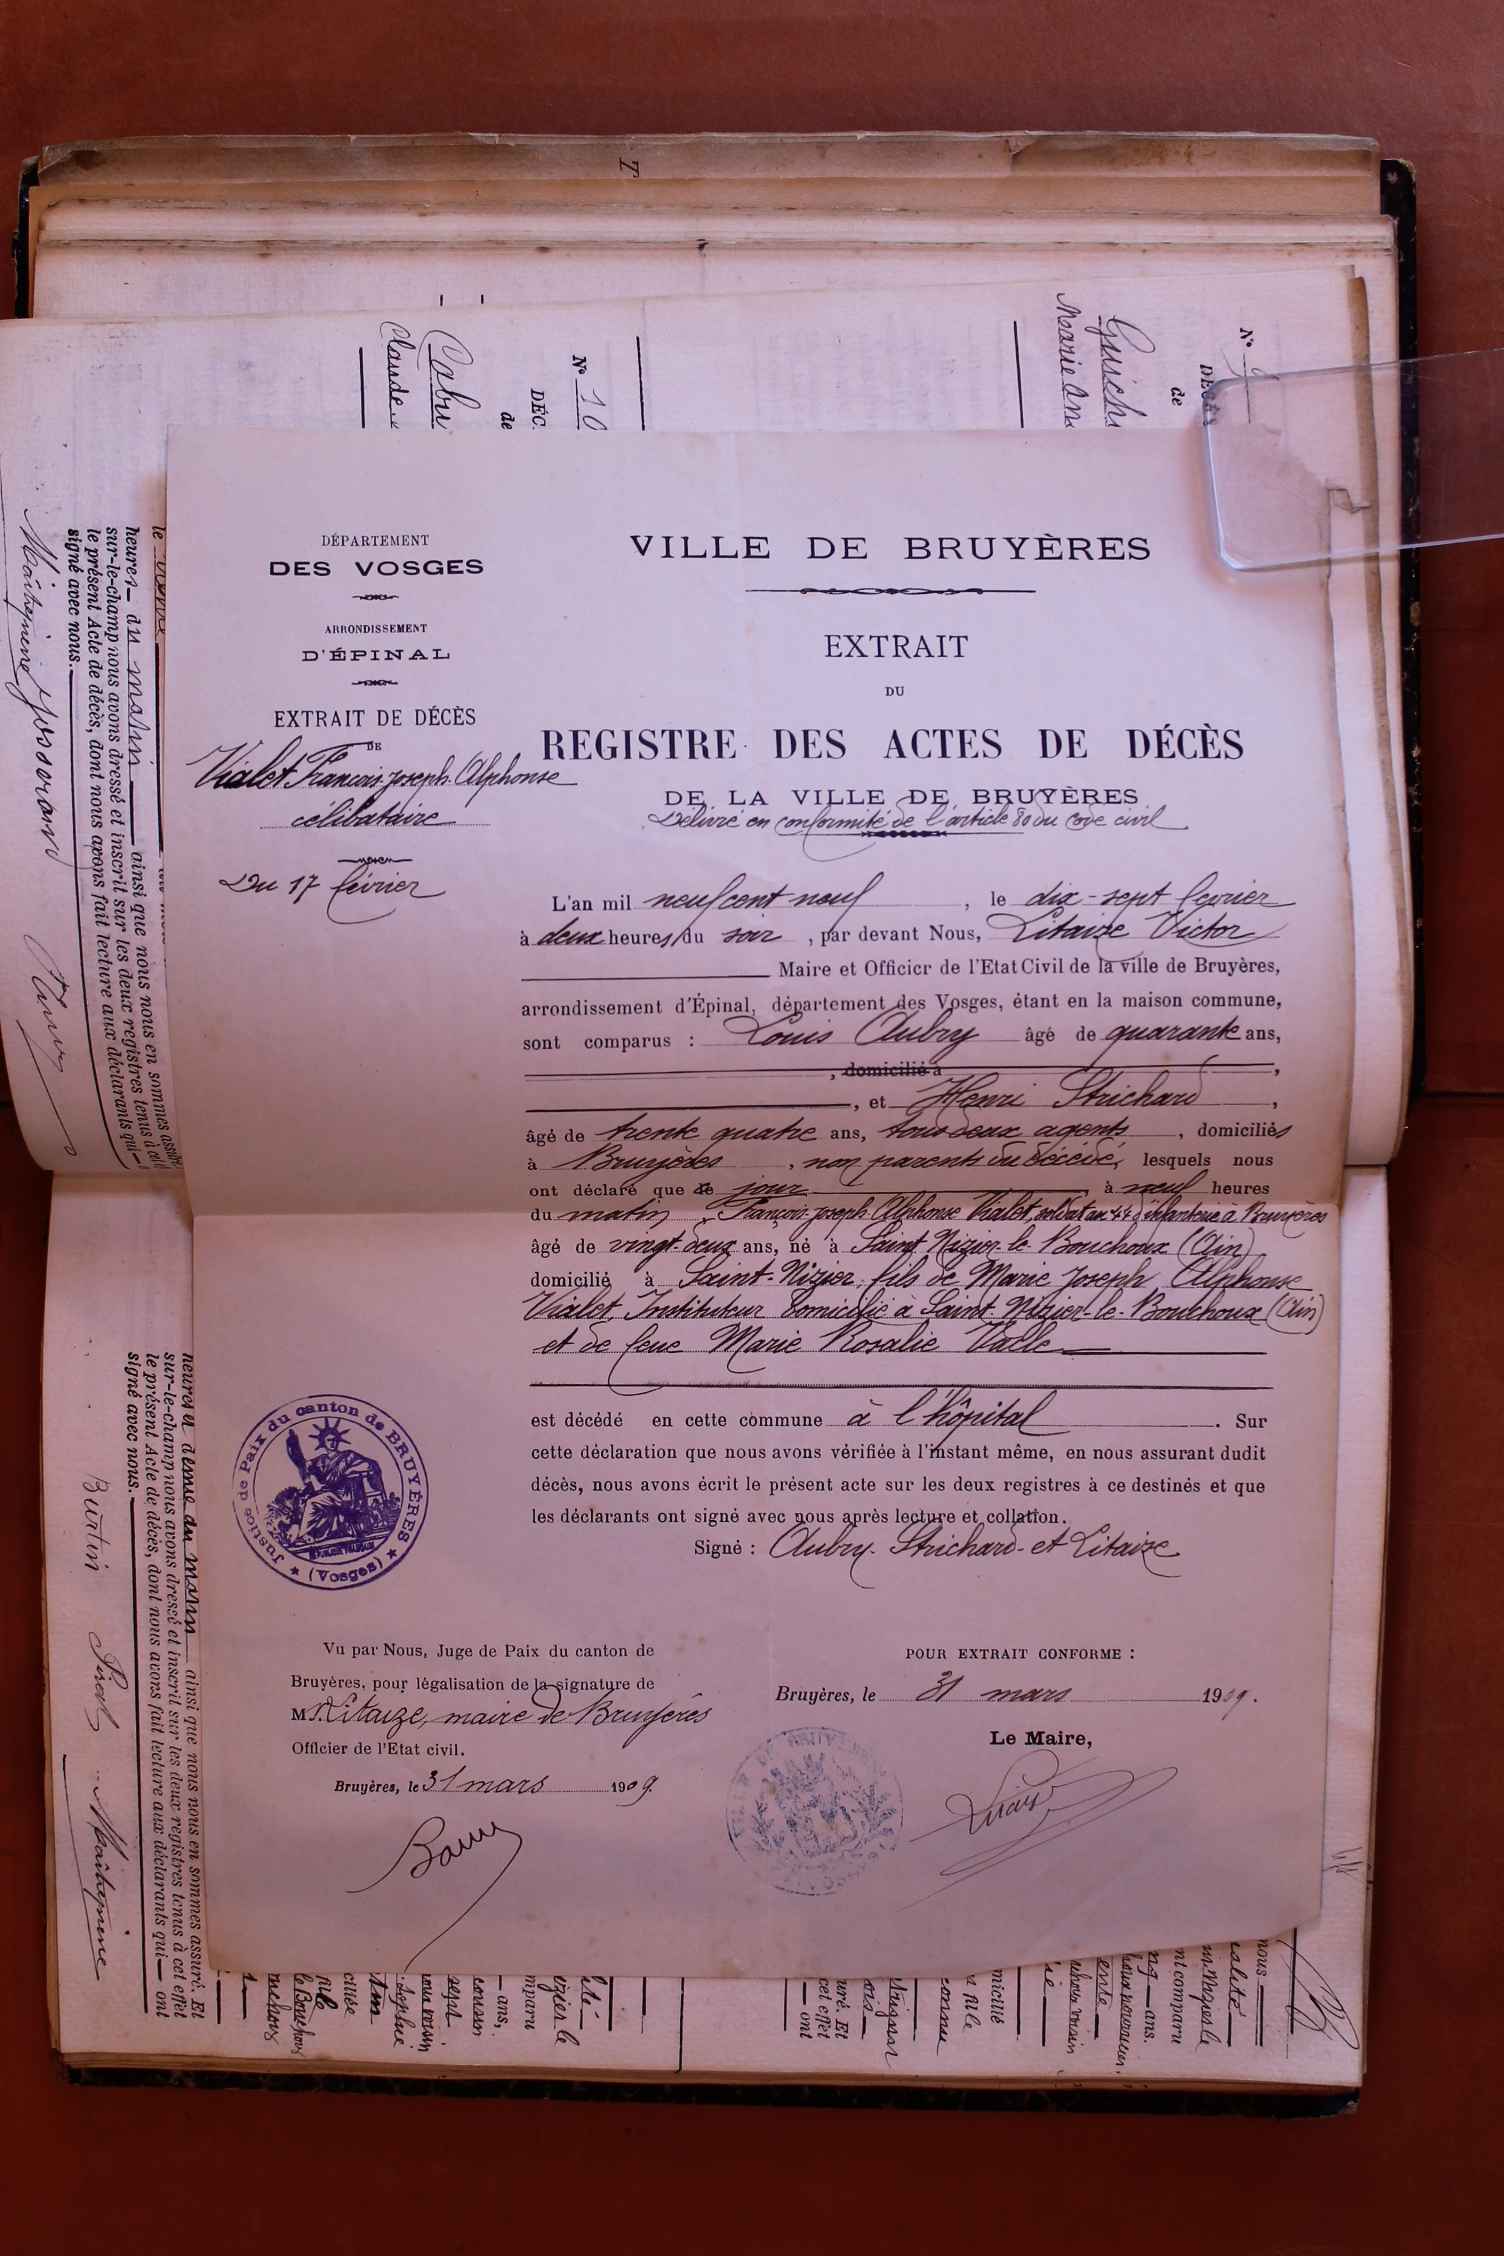 T
N° 10
DÉC.
de
Cabu
Claude
N° 9
DÉCÈS
de
Guich
Marie An
le
heures du matin ainsi que nous nous en sommes assuré. Et
sur-le-champ nous avons dressé et inscrit sur les deux registres tenus à cet
le présent Acte de décès, dont nous avons fait lecture aux déclarants qui
signé avec nous.
DÉPARTEMENT
DES VOSGES
ARRONDISSEMENT
D'ÉPINAL
EXTRAIT DE DÉCÈS
DE
Vialet François Joseph Alphonse
célibataire
Du 17 février
VILLE DE BRUYÈRES
EXTRAIT
DU
REGISTRE DES ACTES DE DÉCÈS
DE LA VILLE DE BRUYÈRES
Délivré en conformité de l'article 80 du Code civil
L'an mil neuf cent neuf, le dix-sept février
à deux heures du soir, par devant Nous, Litaize Victor
Maire et Officier de l'Etat Civil de la ville de Bruyères,
arrondissement d'Épinal, département des Vosges, étant en la maison commune,
sont comparus : Louis Aubry âgé de quarante ans,
, domicilié à ,
, et Henri Strichard,
âgé de trente quatre ans, tous deux agents, domiciliés
à Bruyères, non parents du décédé, lesquels nous
ont déclaré que ce jour à neuf heures
du matin, François Joseph Alphonse Vialet, soldat au d'infanterie à Bruyères
âgé de vingt-deux ans, né à Saint Nizier-le-Bouchoux (Ain)
domicilié à Saint-Nizier, fils de Marie Joseph Alphonse
Vialet, Instituteur domicilié à Saint-Nizier-le-Bouchoux (Ain)
et de feue Marie Rosalie
est décédé en cette commune à l'hôpital. Sur
cette déclaration que nous avons vérifiée à l'instant même, en nous assurant dudit
décès, nous avons écrit le présent acte sur les deux registres à ce destinés et que
les déclarants ont signé avec nous après lecture et collation.
Signé : Aubry - Strichard - et Litaize
Justice de Paix du canton de BRUYÈRES
(Vosges)
Vu par Nous, Juge de Paix du canton de
Bruyères, pour légalisation de la signature de
M. Litaize, maire de Bruyères
Officier de l'Etat civil.
Bruyères, le 31 mars 1909.
POUR EXTRAIT CONFORME :
Bruyères, le 31 mars 1909.
Le Maire,
heures et demie du matin ainsi que nous nous en sommes assuré. Et
sur-le-champ nous avons dressé et inscrit sur les deux registres tenus à cet effet
le présent Acte de décès, dont nous avons fait lecture aux déclarants qui ont
signé avec nous.
Burtin